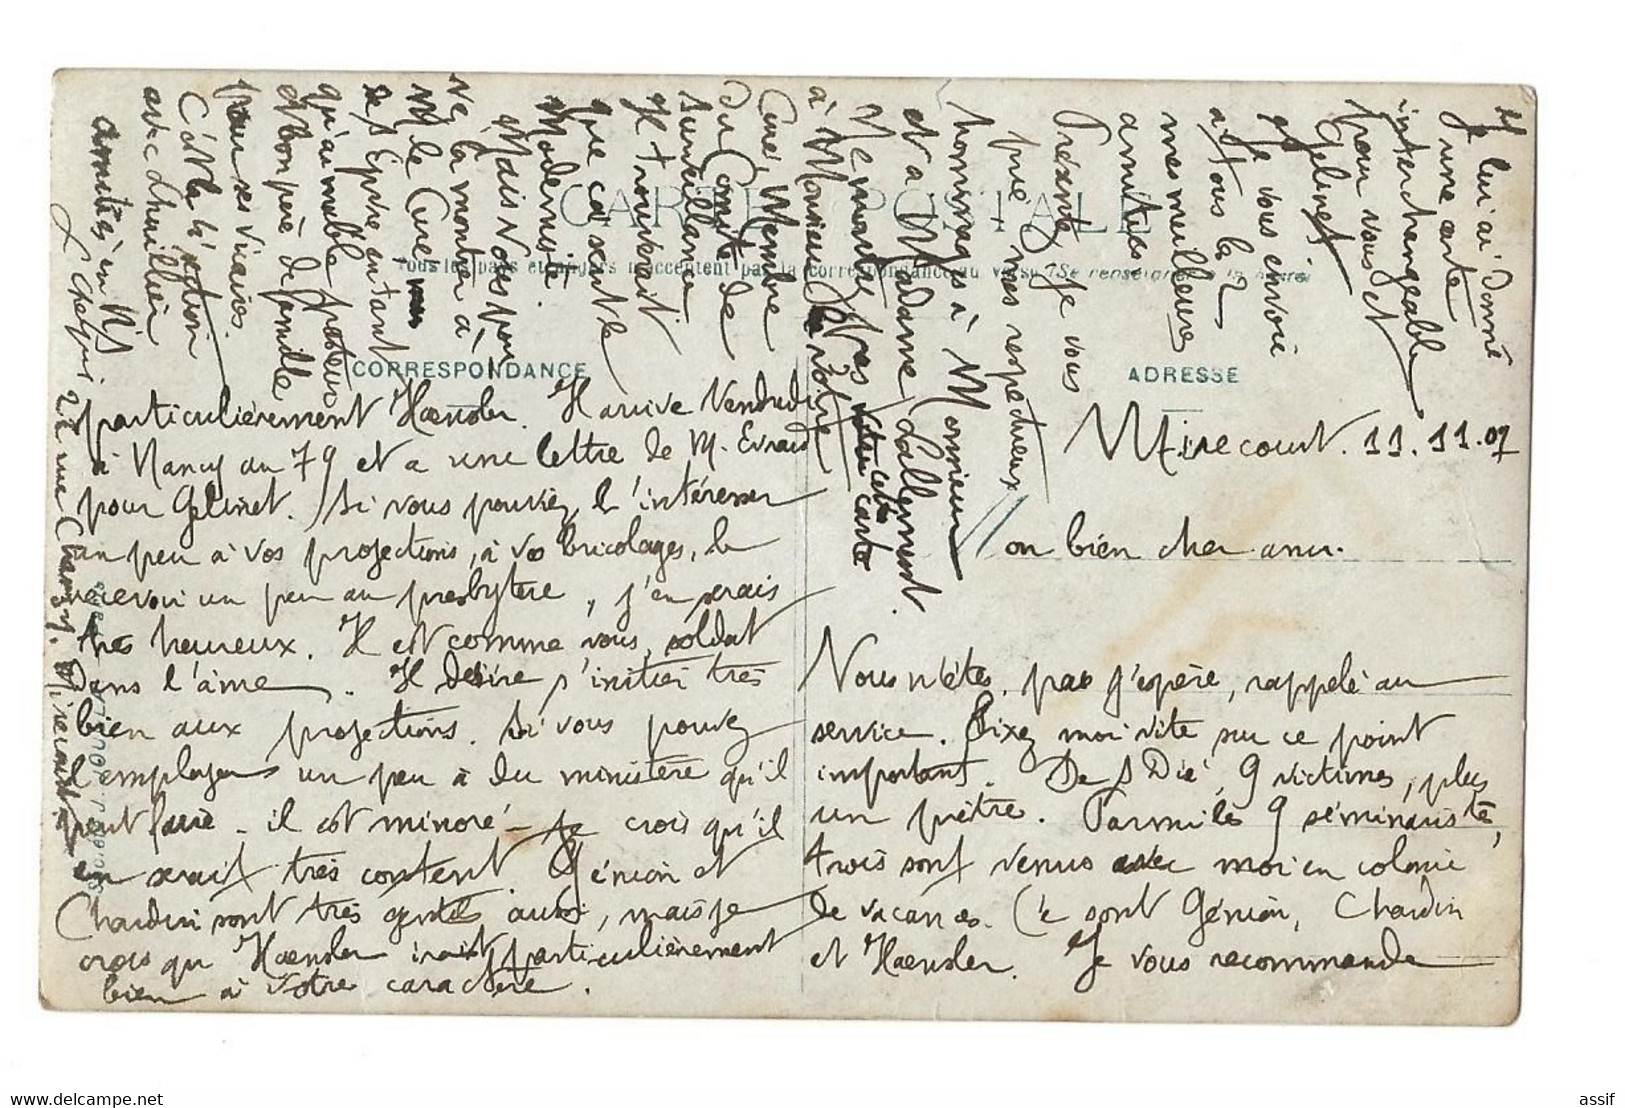 CARTE POSTALE
Tous les pays étrangers n'acceptent pas la correspondance au verso (Se renseigner à la Poste)
CORRESPONDANCE
ADRESSE
Mirecourt. 11.11.07
Mon bien cher ami.
Vous n'êtes, pas j'espère, rappelé au
service. Fixez moi vite sur ce point
important. De St Dié, 9 victimes, plus
un prêtre. Parmi les 9 séminariste,
trois sont venus avec moi en colonie
de vacances. Ce sont Génion, Chardin
et Haensler. Je vous recommande
particulièrement Haensler. Il arrive Vendredi
à Nancy au 79 et a une lettre de M. Evrard
pour Gelinet. Si vous pouviez l'intéresser
un peu à vos projections, à vos bricolages, le
recevoir un peu au presbytère, j'en serais
très heureux. Il est comme vous, soldat
dans l'âme. Il désire s'initier très
bien aux projections. Si vous pouvez
l'employer un peu à du ministère qu'il
peut faire - il est minoré - je crois qu'il
en serait très content. Génion et
Chardin sont très gentils aussi, mais je
crois que Haensler irait particulièrement
bien à votre caractère.
Je lui ai donné
une carte
interchangeable
pour vous et
Gelinet
Je vous envoie
à tous les 2
mes meilleures
amitiés
Présentez je vous
prie, mes respectueux
hommages à Monsieur
et à Madame Lallement.
Ne montrez pas cette carte
à Monsieur le
Curé, Membre
du Comité de
Surveillance
Il trouverait
que ça sent le
Moderniste.
Mais vous pou
vez la montrer à
M. le Curé
de St Epvre en tant
qu'aimable pasteur
et bon père de famille
pour ses vicaires.
avec Lhuillier
Amitiés en NS
22 rue Chanzy. Mirecourt
assif